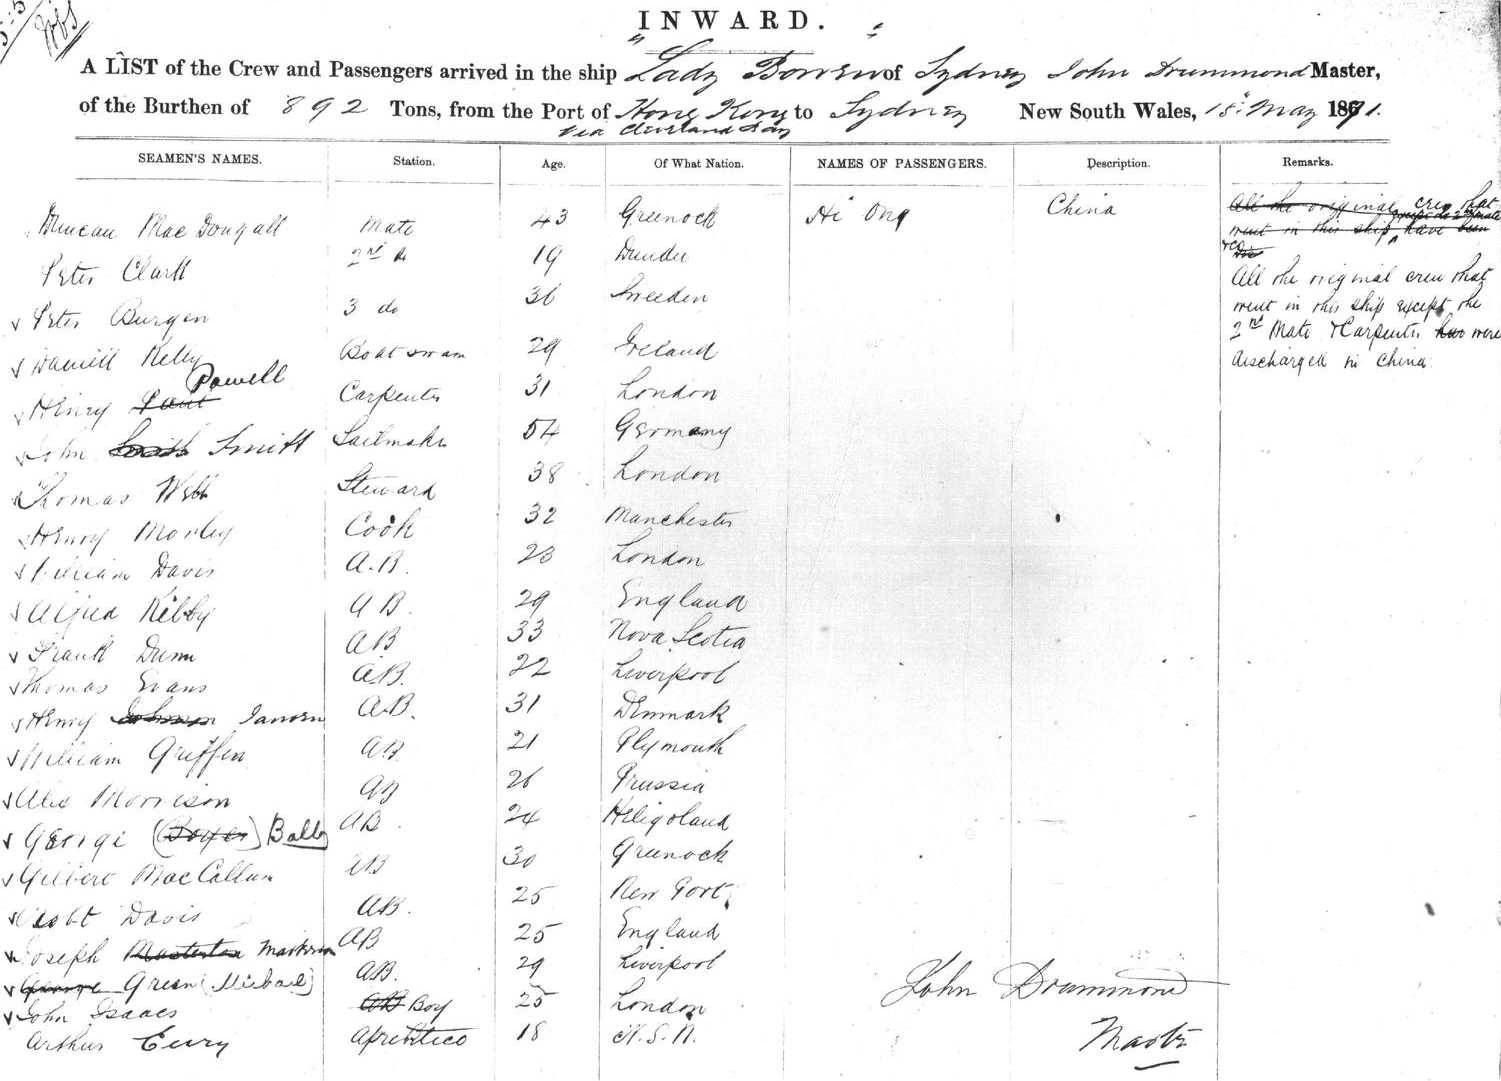 INWARD.
A LIST of the Crew and Passengers arrived in the ship "Lady Bowen" of Sydney John Drummond Master,
of the Burthen of 892 Tons, from the Port of Hong Kong to Sydney New South Wales, 15 May 1871.
via Cleveland Bay
SEAMEN'S NAMES. Station. Age. Of What Nation. NAMES OF PASSENGERS. Description. Remarks.
Duncan MacDougall Mate 43 Greenock Hi Ong China
Peter Clark 2nd do 19 Dundee
Peter Burgen 3 do 36 Sweden
Daniell Kelly Boatswain 29 Ireland
Henry Powell Carpenter 31 London
John Smith Smitt Sailmaker 54 Germany
Thomas Webb Steward 38 London
Henry Morley Cook 32 Manchester
William Davis A.B. 23 London
Alfred Kibby A B. 29 England
Frank Dunn AB 33 Nova Scotia
Thomas Evans A.B. 22 Liverpool
Henry Johnson Jansen A.B. 31 Denmark
William Griffen A.B 21 Plymouth
Alex Morrison AB 26 Prussia
George (Boyer) Balls AB. 24 Heligoland
Gilbert MacCallum AB 30 Greenock
Robt Davis AB. 25 New Port
Joseph Masterton Masterson AB 25 England
George Green (Michael) AB. 29 Liverpool
John Isaacs AB Boy 25 London
Arthur Eury Aprentice 18 N.S.W.
All the original crew that
except do 2nd mate
went in this ship have been
All the original crew that
went in this ship except the
2nd Mate & Carpenter were
discharged in China
John Drummond
Master